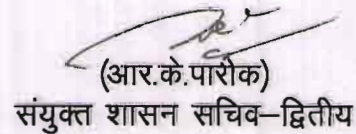 (आर.के.पारीक)
संयुक्त शासन सचिव–द्वितीय